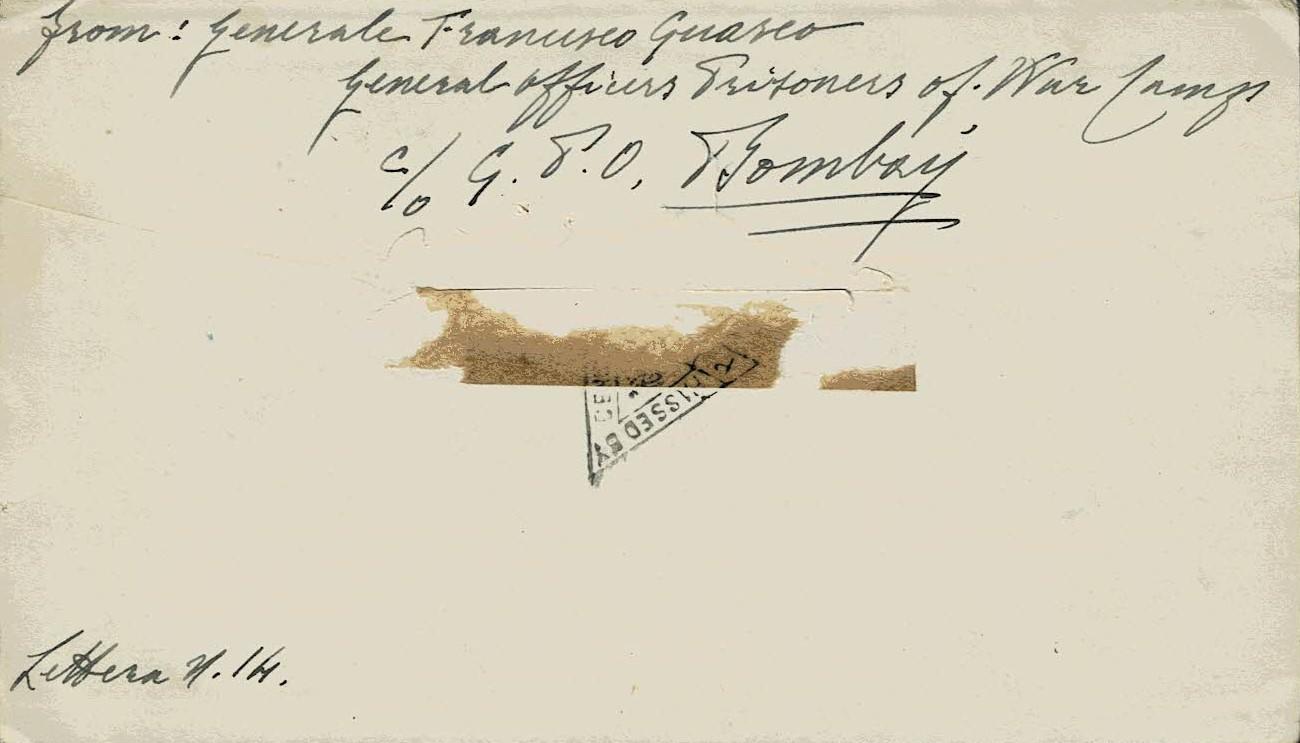 from: Generale Francesco Guasco
General officers Prisoners of War Camp
c/o G.P.O, Bombay
PASSED BY
Lettera N. 14.